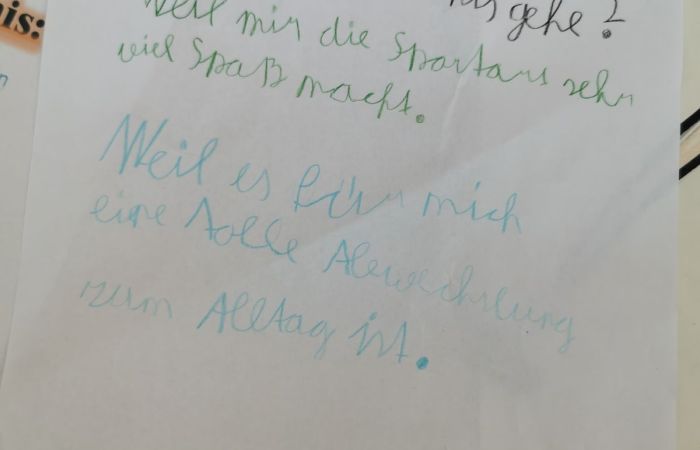 nis:
gehe?
weil mir die Spartans sehr
viel Spaß macht.
Weil es für mich
eine tolle Abwechslung
zum Alltag ist.